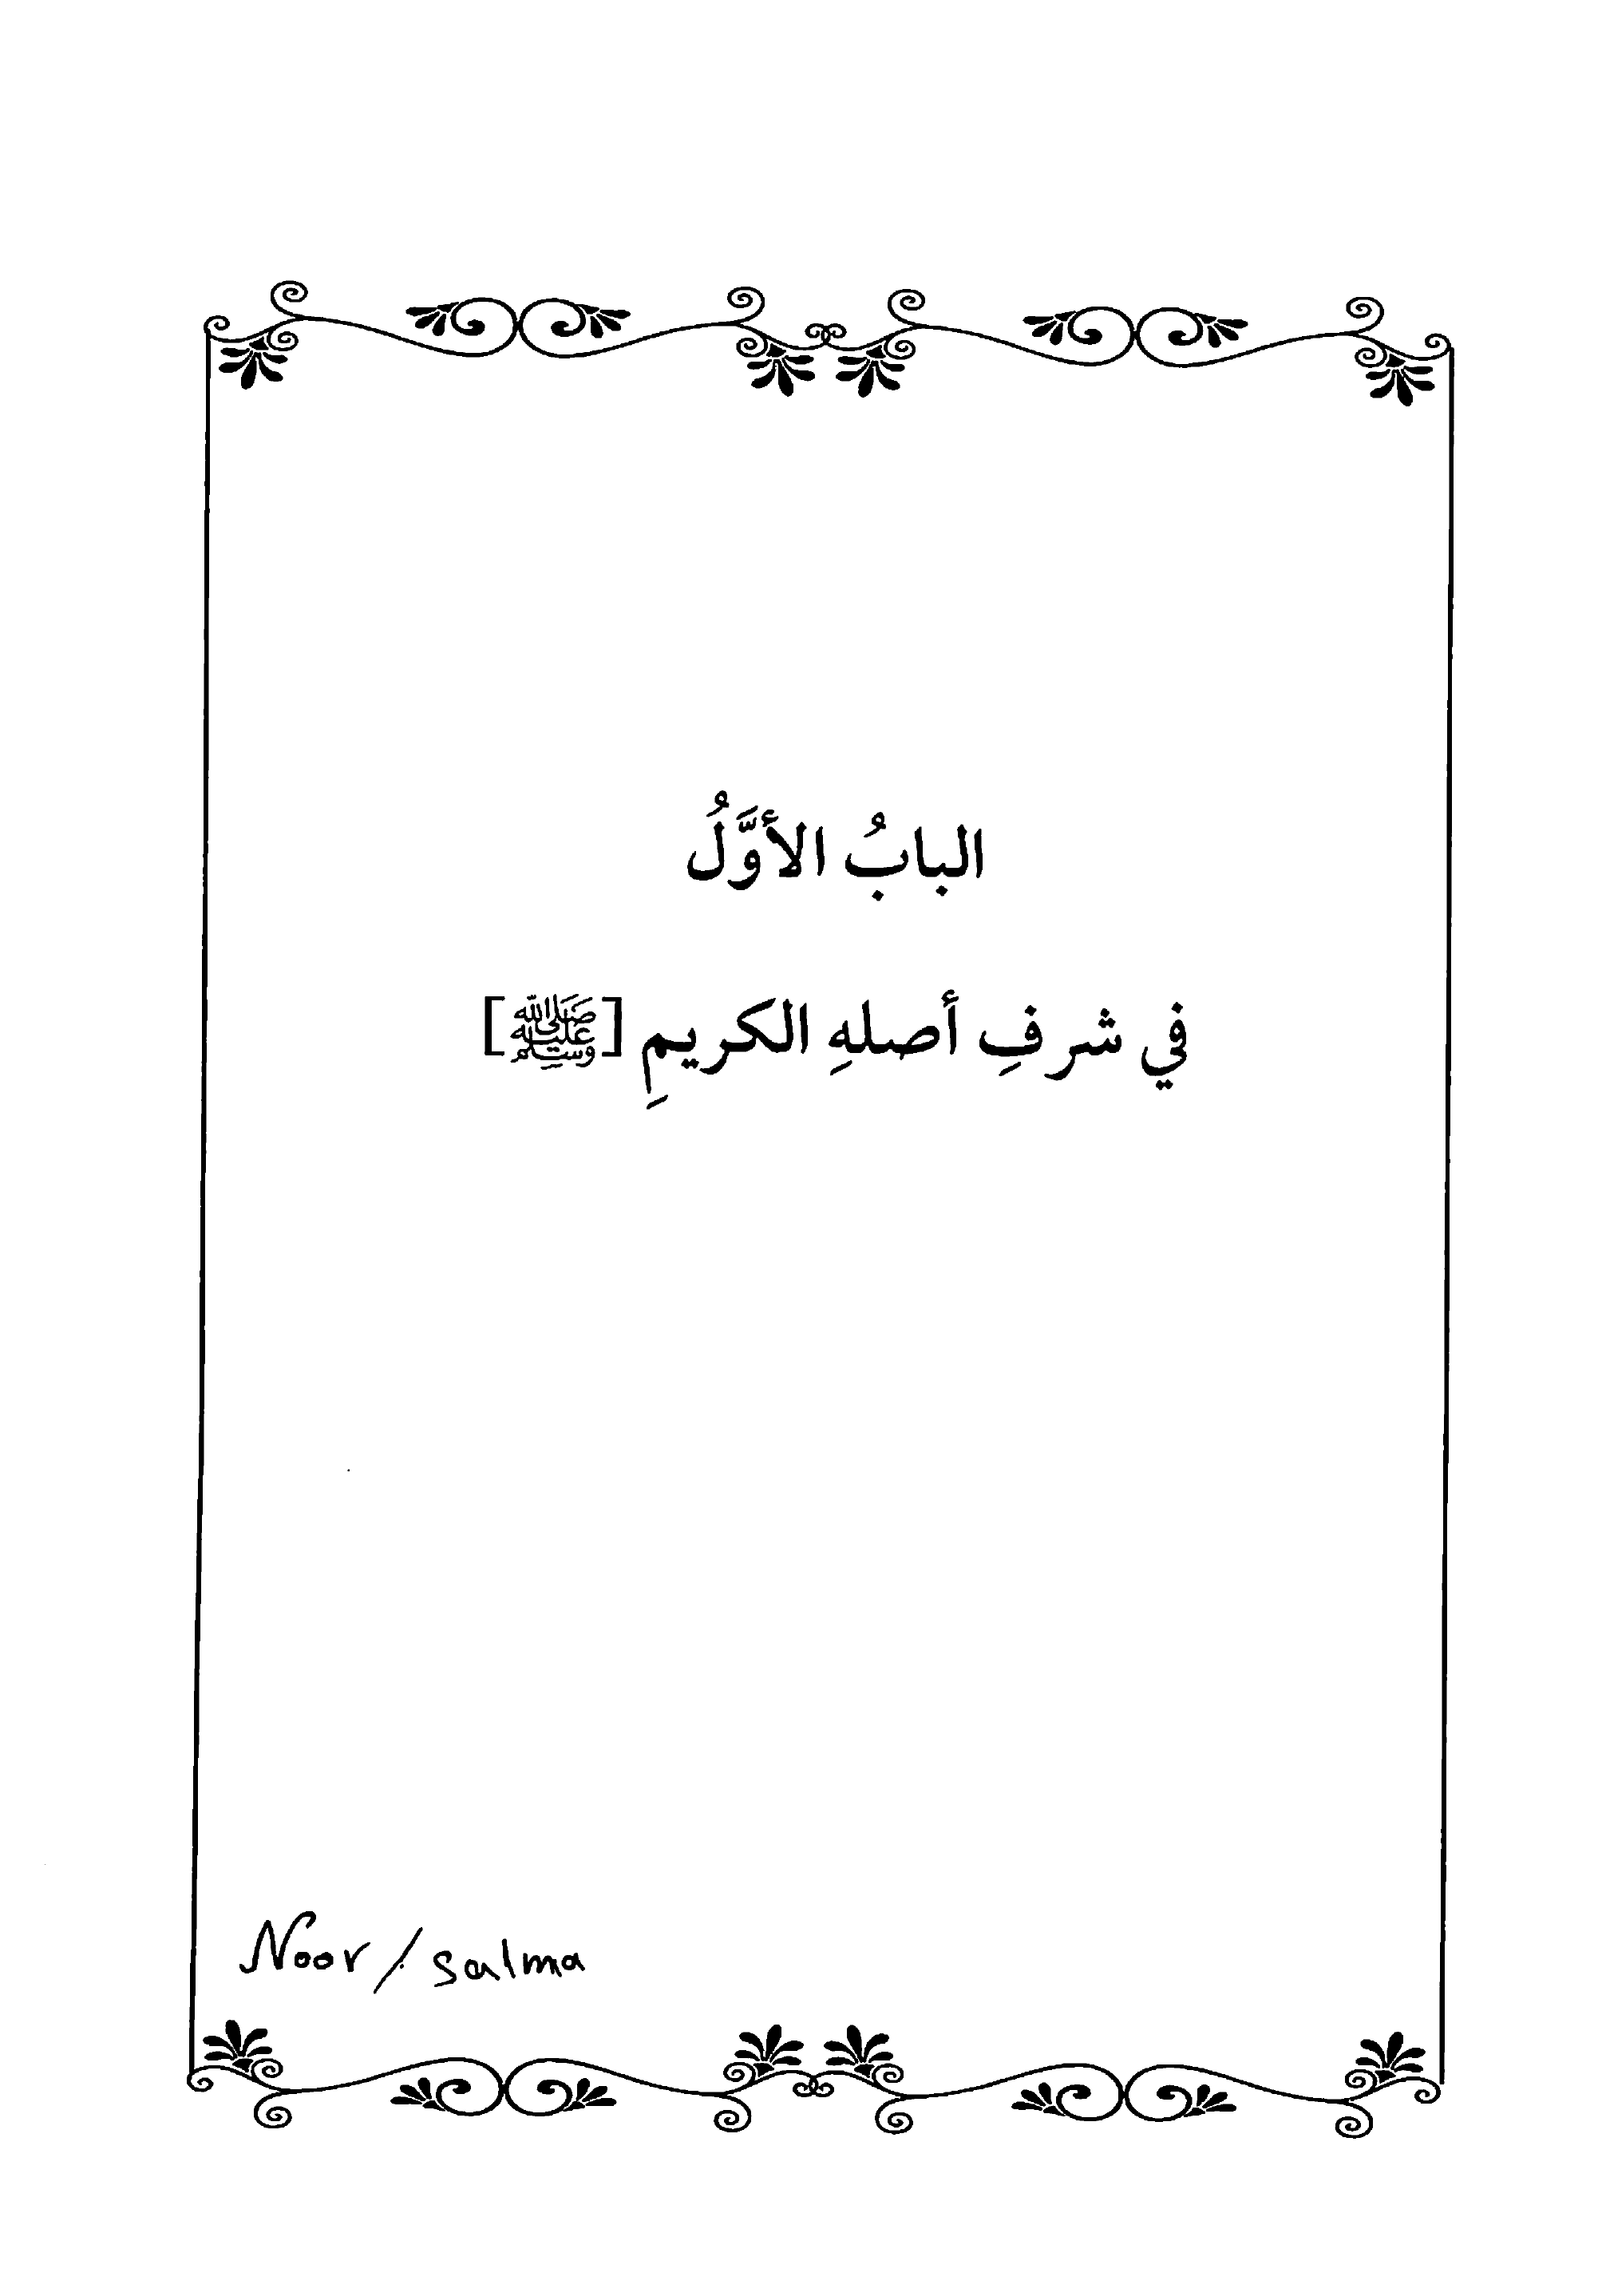 البابُ الأوَّلُ
في شرفِ أصلهِ الكريمِ [ﷺ]
Noor / salma